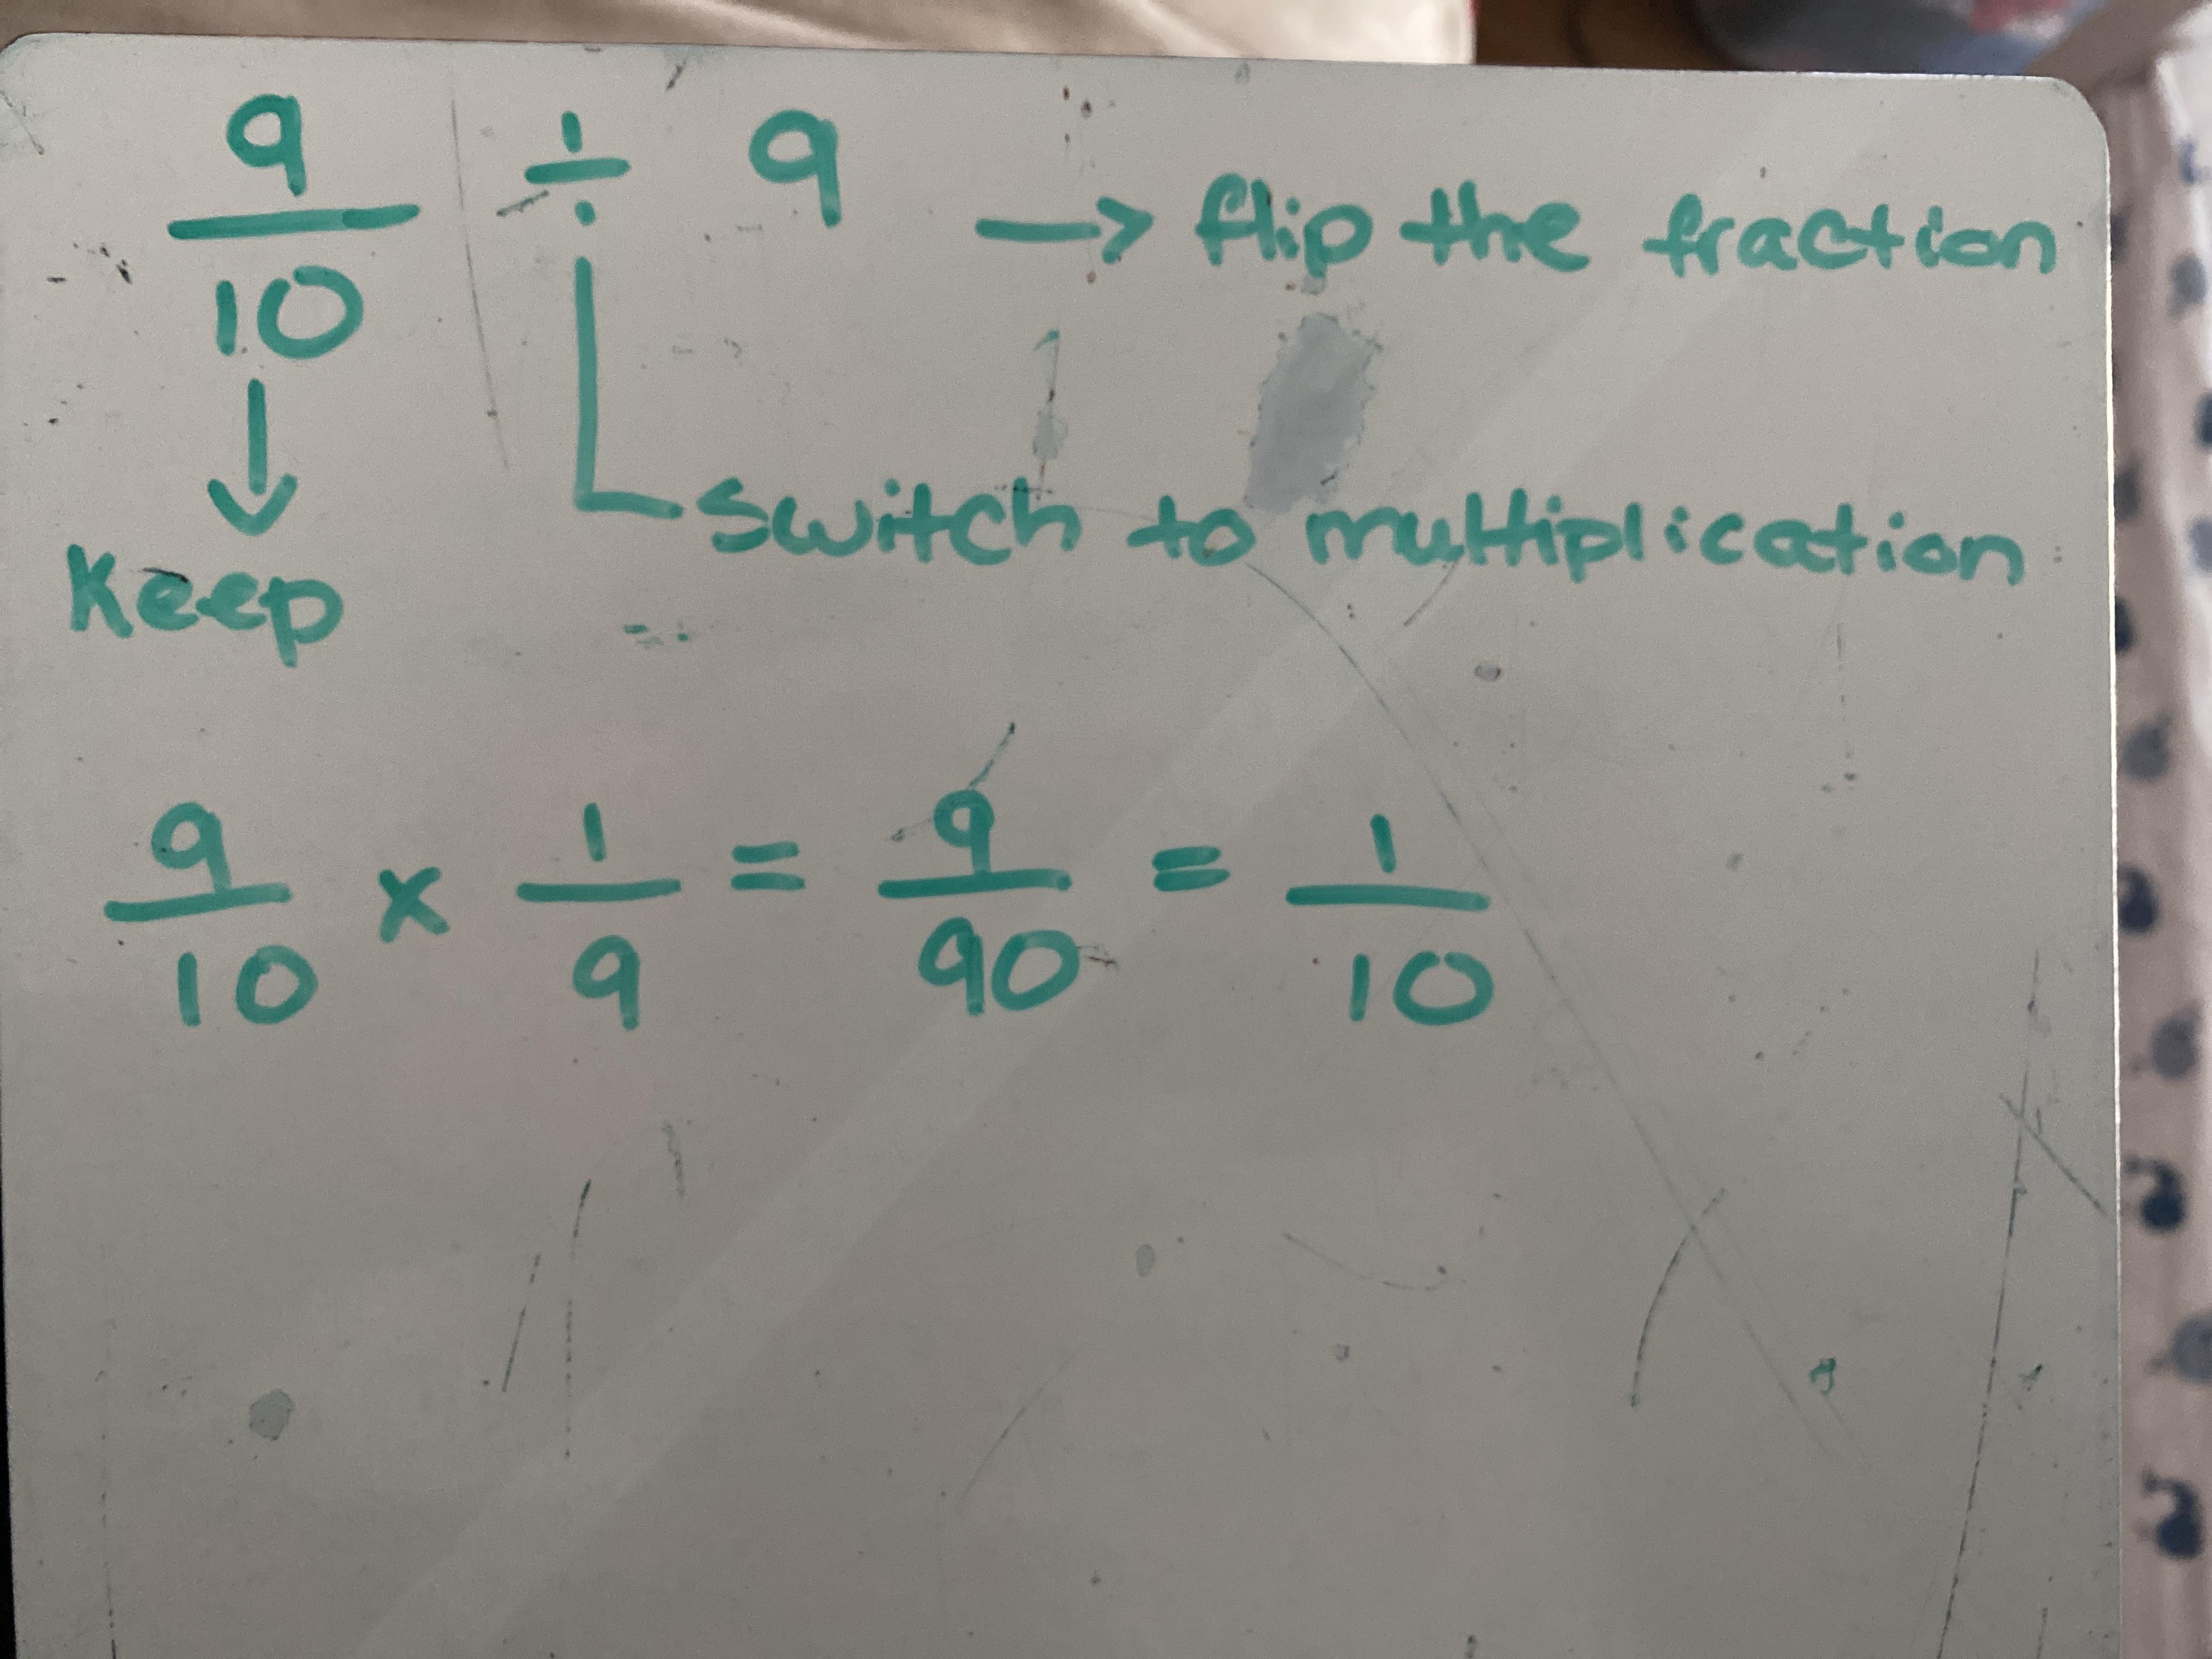 9/10 ÷ 9 → flip the fraction
switch to multiplication
Keep
9/10 × 1/9 = 9/90 = 1/10